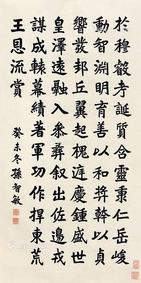 於穆叡考誕質含靈秉仁岳峻
動智淵明育善以和幹貞
響發邦丘翼起槐庭慶鍾盛世
皇澤遠融入參彝叙出佐邊戎
謀成轅幕績著軍功作捍東荒
王恩流賞
癸未冬 孫智敏